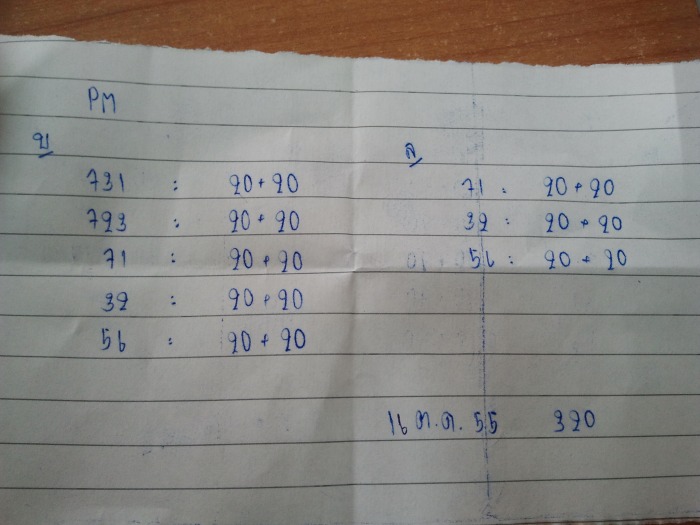 PM
บ ล
731 : 20+20 71 : 20+20
723 : 20+20 32 : 20+20
71 : 20+20 56 : 20+20
32 : 20+20
56 : 20+20
16 ต.ค. 55 320